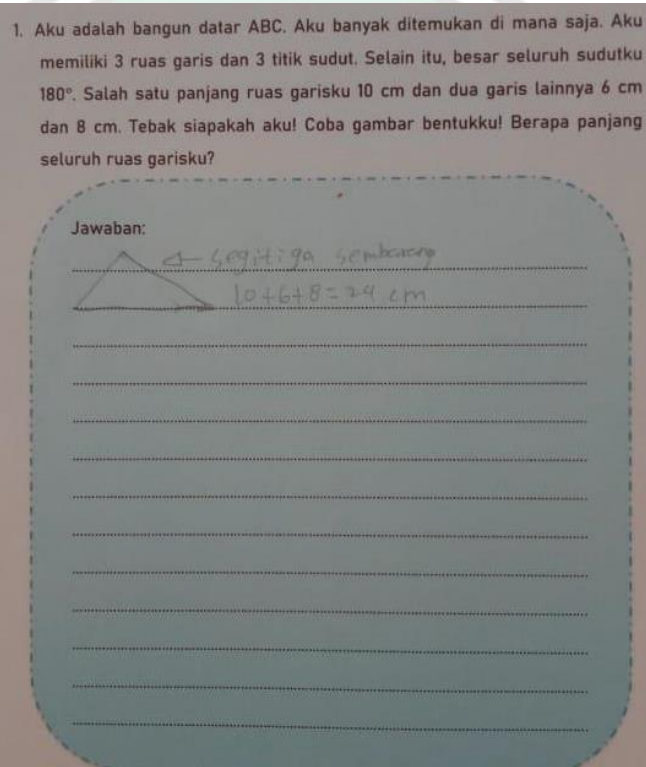 1. Aku adalah bangun datar ABC. Aku banyak ditemukan di mana saja. Aku
memiliki 3 ruas garis dan 3 titik sudut. Selain itu, besar seluruh sudutku
180°. Salah satu panjang ruas garisku 10 cm dan dua garis lainnya 6 cm
dan 8 cm. Tebak siapakah aku! Coba gambar bentukku! Berapa panjang
seluruh ruas garisku?
Jawaban:
segitiga sembarang
10+6+8=24 cm